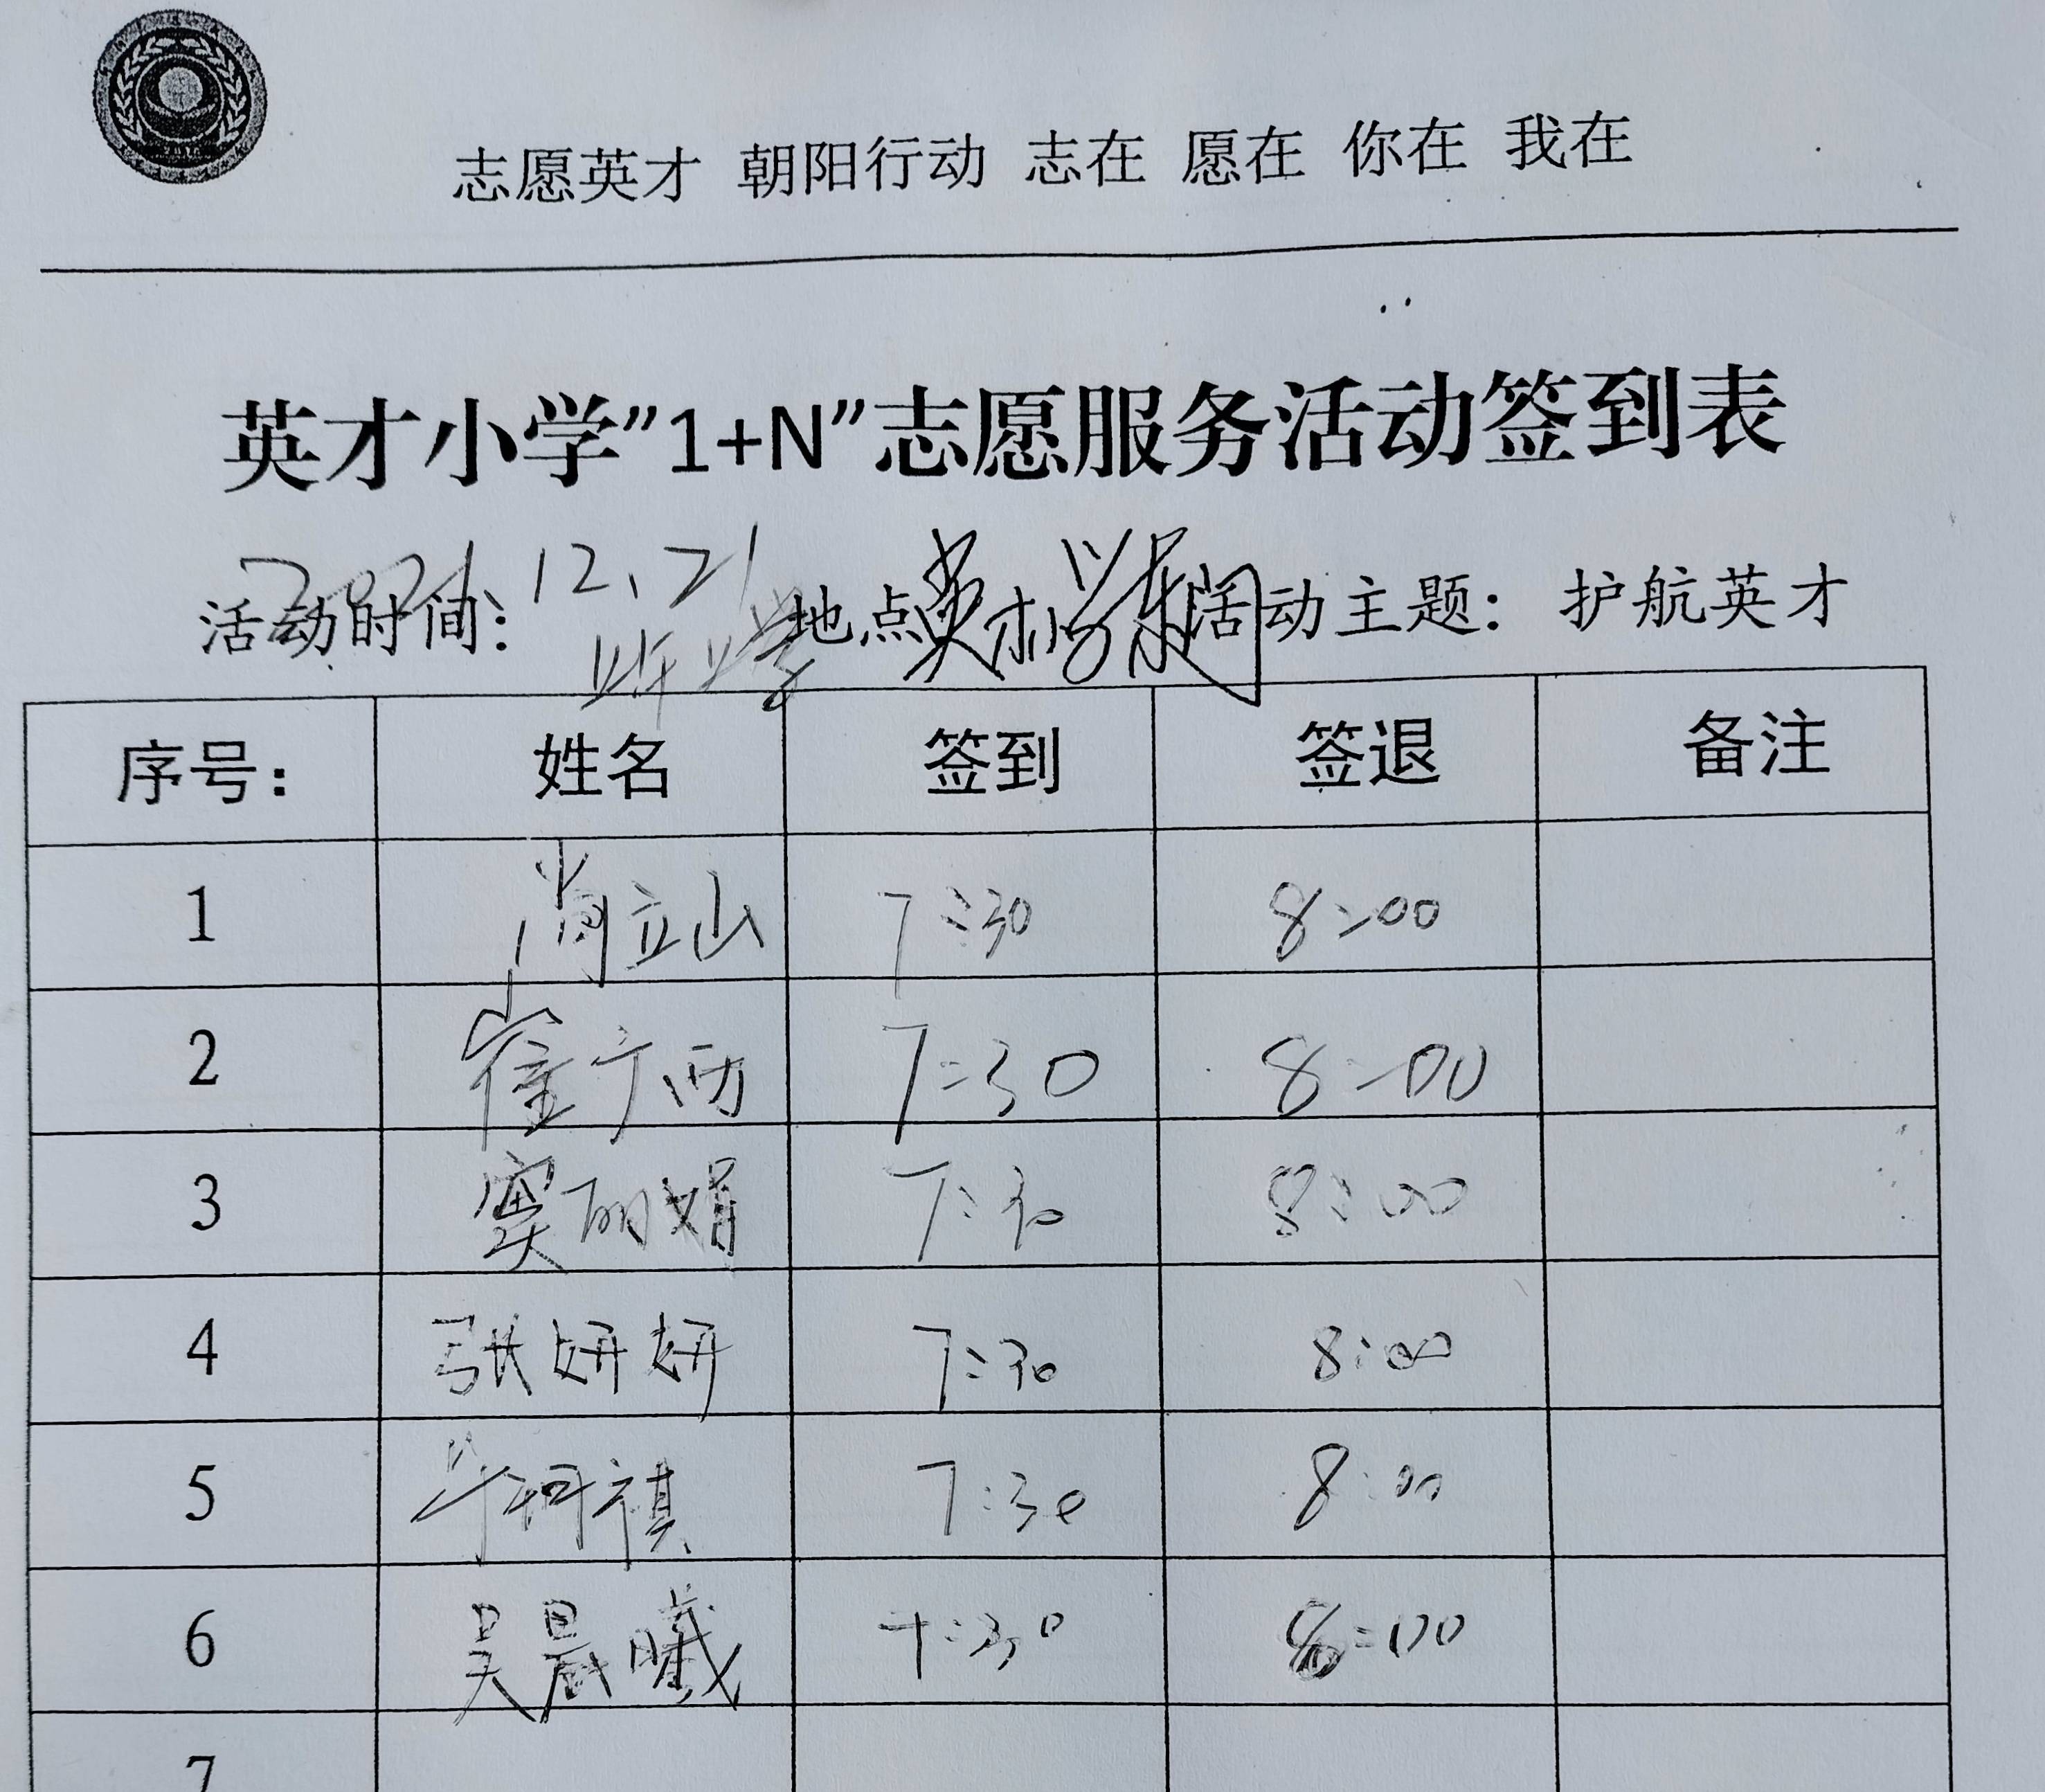 志愿英才 朝阳行动 志在 愿在 你在 我在
英才小学”1+N”志愿服务活动签到表
活动时间: 2021.12.21 地点 英才小学东门 活动主题: 护航英才
序号: 姓名 签到 签退 备注
1 肖立山 7:30 8:00
2 崔宁西 7:30 8:00
3 窦丽娟 7:30 8:00
4 张妍妍 7:30 8:00
5 毕珂祺 7:30 8:00
6 吴晨曦 7:30 8:00
7